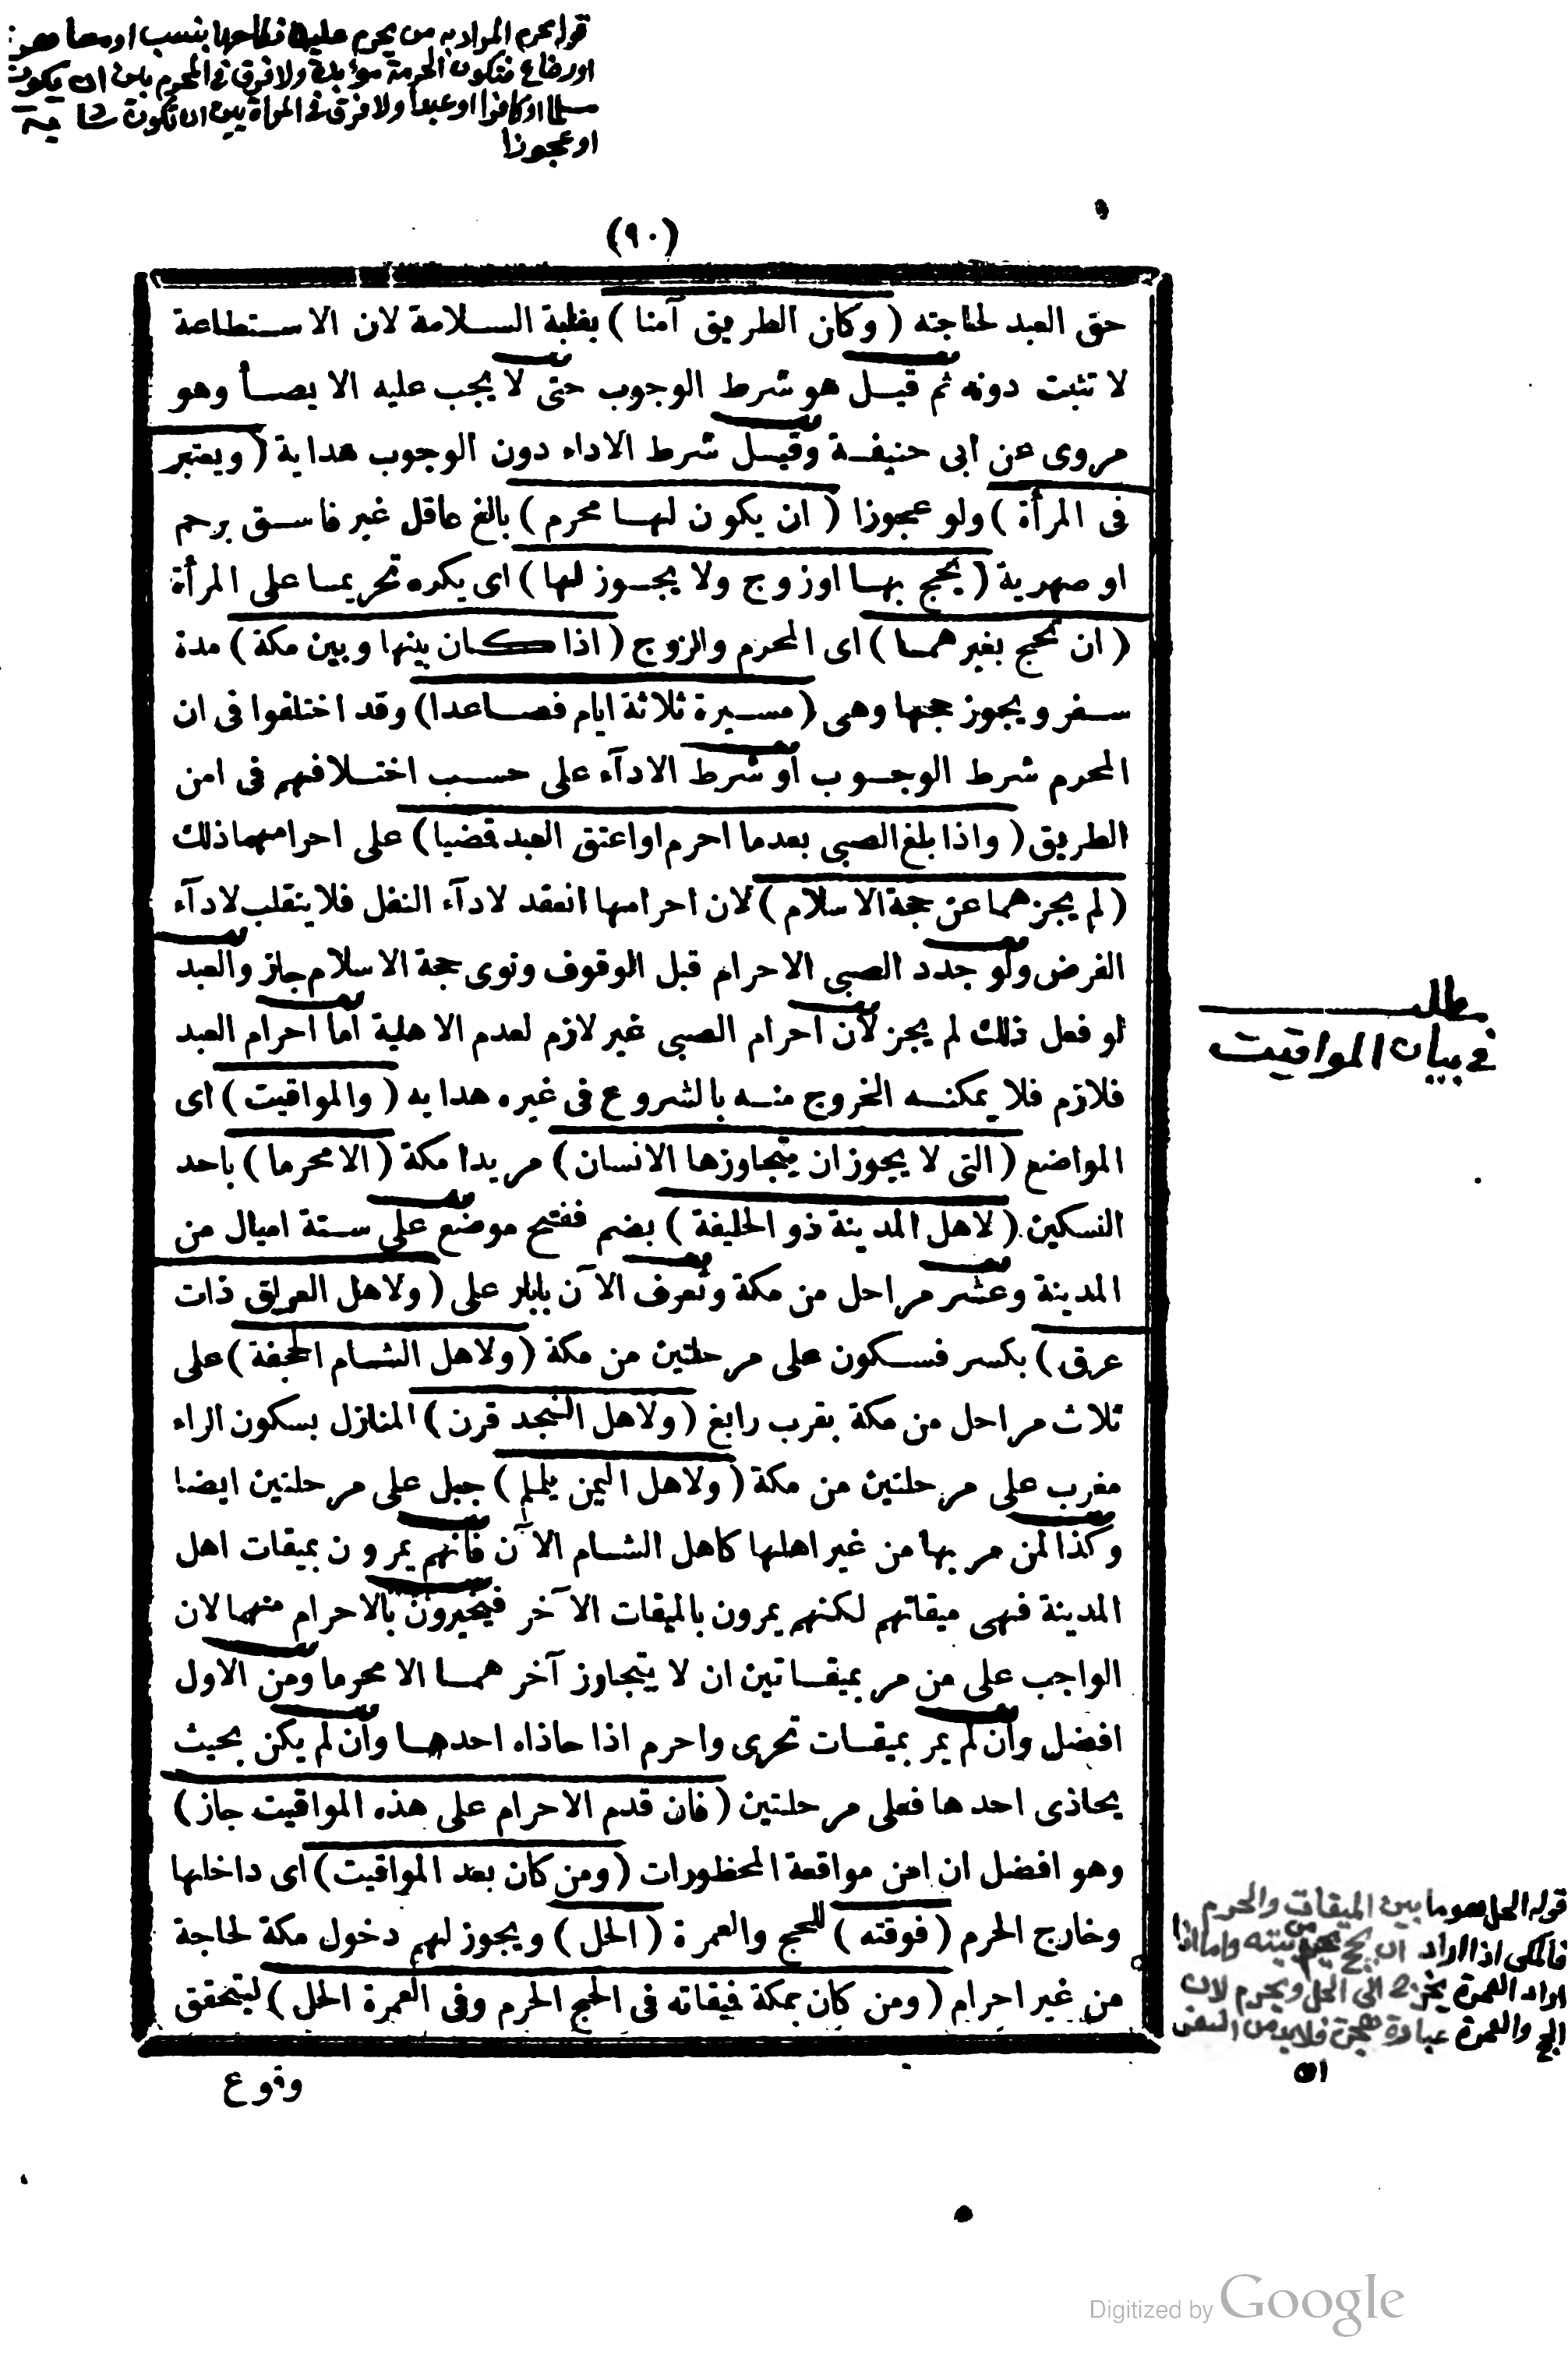 قوله محرم المراد به من يحرم عليه نكاحها بنسب او مصاهرة
او رضاع فتكون الحرمة مؤبدة ولا فرق في المحرم بين ان يكون
مسلما او كافرا او عبدا ولا فرق في المراة بين ان تكون شابة
او عجوزا
(٩٠)
حق العبد لحاجته (وكان الطريق آمنا) بغلبة السلامة لان الاستطاعة
لا تثبت دونه ثم قيل هو شرط الوجوب حتى لا يجب عليه الايصأ وهو
مروى عن ابى حنيفة وقيل شرط الاداء دون الوجوب هداية (ويعتبر
فى المرأة) ولو عجوزا (ان يكون لها محرم) بالغ عاقل غير فاسق برحم
او صهرية (يحج بها اوزوج ولا يجوز لها) اى يكره تحريما على المرأة
(ان تحج بغيرهما) اى المحرم والزوج (اذا كان بينها وبين مكة) مدة
سفر ويجوز حجها وهى (مسيرة ثلاثة ايام فصاعدا) وقد اختلفوا فى ان
المحرم شرط الوجوب او شرط الادآء على حسب اختلافهم فى امن
الطريق (واذا بلغ الصبى بعدما احرم اواعتق العبد فضيا) على احرامهما ذلك
(لم يجزهما عن حجة الاسلام) لان احرامها انعقد لادآء النفل فلا ينقلب لادآء
الفرض ولو جدد الصبى الاحرام قبل الوقوف ونوى حجة الاسلام جاز والعبد
لو فعل ذلك لم يجز لان احرام الصبى غير لازم لعدم الاهلية اما احرام العبد
فلازم فلا يمكنه الخروج منه بالشروع فى غيره هدايه (والمواقيت) اى
المواضع (التى لا يجوز ان يتجاوزها الانسان) مريدا مكة (الا محرما) باحد
النسكين (لاهل المدينة ذو الحليفة) بضم ففتح موضع على ستة اميال من
المدينة وعشر مراحل من مكة وتعرف الآن بابار على (ولاهل العراق ذات
عرق) بكسر فسكون على مرحلتين من مكة (ولاهل الشام الجحفة) على
ثلاث مراحل من مكة بقرب رابغ (ولاهل النجد قرن) المنازل بسكون الراء
مغرب على مرحلتين من مكة (ولاهل اليمن يلملم) جبل على مرحلتين ايضا
وكذا لمن مر بها من غير اهلها كاهل الشام الآن فانهم يمرون بميقات اهل
المدينة فهى ميقاتهم لكنهم يمرون بالميقات الآخر فيخيرون بالاحرام منهما لان
الواجب على من مر بميقاتين ان لا يتجاوز آخرهما الا محرما ومن الاول
افضل وان لم يمر بميقات تحرى واحرم اذا حاذاه احدها وان لم يكن بحيث
يحاذى احدها فعلى مرحلتين (فان قدم الاحرام على هذه المواقيت جاز)
وهو افضل ان امن مواقعة المحظورات (ومن كان بعد المواقيت) اى داخلها
وخارج الحرم (فوقته) للحج والعمرة (الحل) ويجوز لهم دخول مكة لحاجة
من غير احرام (ومن كان بمكة فميقاته فى الحج الحرم وفى العمرة الحل) ليتحقق
وقوع
مطلب
في بيان المواقيت
قوله الحل هو ما بين الميقات والحرم
فالمكي اذا اراد ان يحج يحرم من بيته واما اذا
اراد العمرة يخرج الى الحل ويحرم لان
الحج والعمرة عبادة فلابد من السفر
اه
Digitized by Google